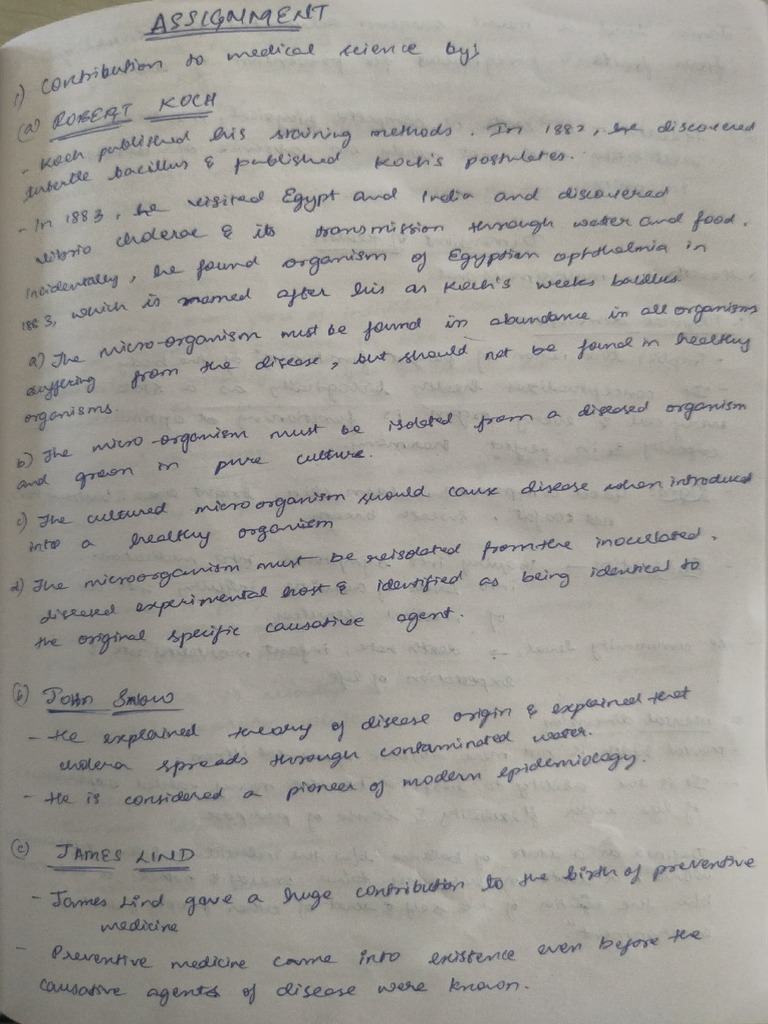 ASSIGNMENT
1) Contribution to medical science by:
(a) ROBERT KOCH
- Koch published his staining methods. In 1882, he discovered
tubercle bacillus & published Koch's postulates.
- In 1883, he visited Egypt and India and discovered
vibrio cholerae & its transmission through water and food.
Incidentally, he found organism of Egyptian ophthalmia in
1883, which is named after his as Koch's weeks bacillus.
a) The micro-organism must be found in abundance in all organisms
suffering from the disease, but should not be found in healthy
organisms.
b) The micro-organism must be isolated from a diseased organism
and grown in pure culture.
c) The cultured microorganism should cause disease when introduced
into a healthy organism
d) The microorganism must be reisolated from the inoculated,
diseased experimental host & identified as being identical to
the original specific causative agent.
(b) JOHN SNOW
- He explained theory of disease origin & explained that
cholera spreads through contaminated water.
- He is considered a pioneer of modern epidemiology.
(c) JAMES LIND
- James Lind gave a huge contribution to the birth of preventive
medicine
- Preventive medicine came into existence even before the
causative agents of disease were known.